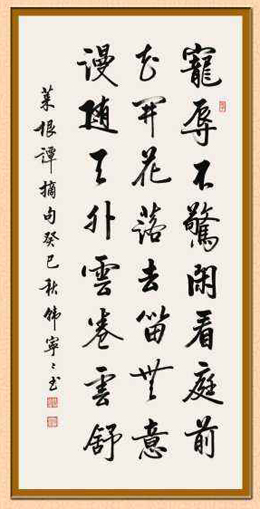 寵辱不驚閑看庭前
花開花落去留無意
漫随天外雲卷雲舒
菜根譚摘句癸巳秋寧〻书